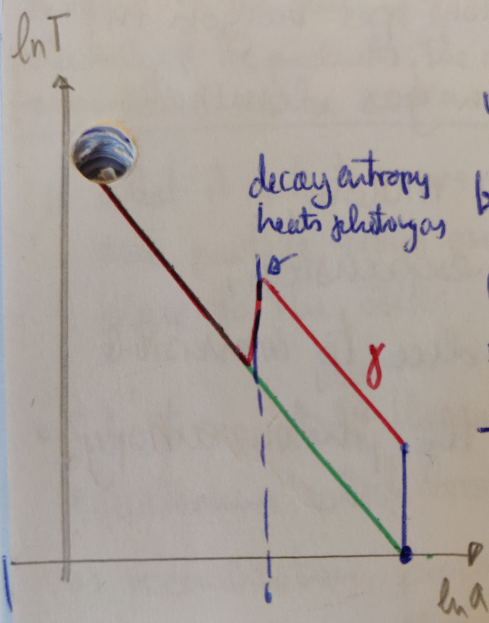 ln T
decay entropy
heats photongas
γ
ln a